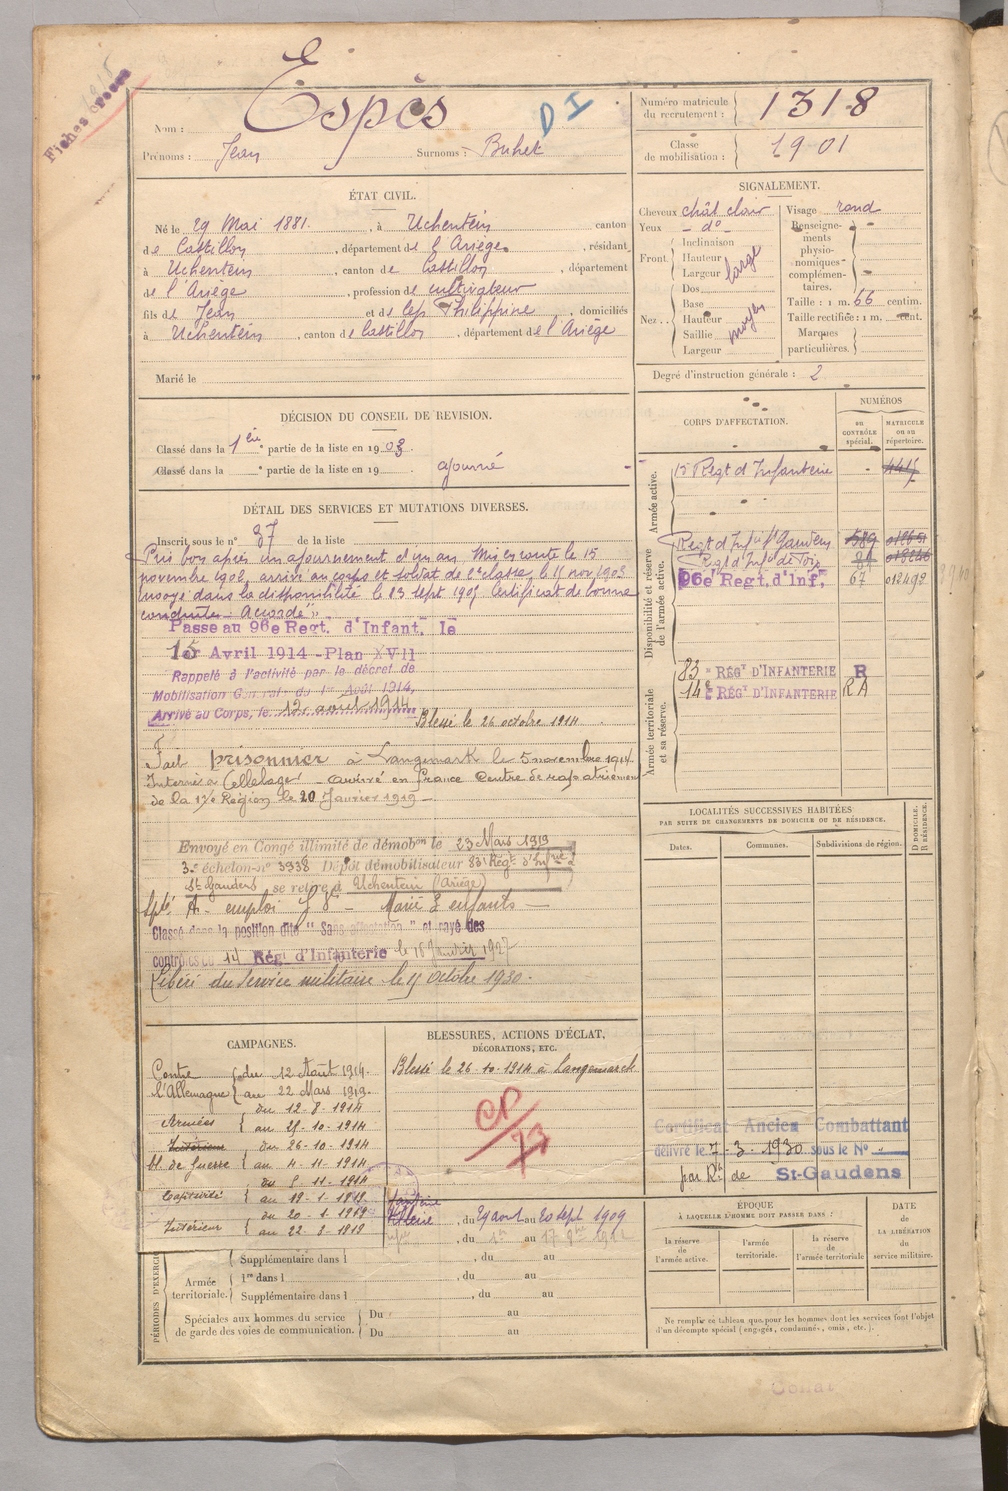 Fiches
Nom : Espès
D I
Prénoms : Jean Surnoms : Buhek
Numéro matricule du recrutement : 1318
Classe de mobilisation : 1901
ÉTAT CIVIL.
Né le 29 Mai 1881. , à Uchentein canton
de Castillon , département de l'Ariège , résidant
à Uchentein , canton de Castillon , département
de l'Ariège , profession de cultivateur
fils de Jean et de Cep Philippine , domiciliés
à Uchentein , canton de Castillon , département de l'Ariège
Marié le
SIGNALEMENT.
Cheveux chât clair
Yeux - d° -
Front. Inclinaison
Hauteur
Largeur large
Nez .. Dos
Base
Hauteur moyen
Saillie
Largeur
Visage rond
Renseignements physionomiques complémentaires.
Taille : 1 m. 66 centim.
Taille rectifiée : 1 m. cent.
Marques particulières.
Degré d'instruction générale : 2
DÉCISION DU CONSEIL DE REVISION.
Classé dans la 1ère partie de la liste en 1903.
Classé dans la e partie de la liste en 19 ajourné
DÉTAIL DES SERVICES ET MUTATIONS DIVERSES.
Inscrit sous le n° 37 de la liste
Pris bon après un ajournement d'un an. Mis en route le 15
novembre 1903, arrivé au corps et soldat de 2e classe, le 15 nov 1903
Envoyé dans la disponibilité le 23 sept 1905 Certificat de bonne
conduite "Accordé"
Passe au 96e Regt. d'Infant. le
15 Avril 1914 - Plan XVII
Rappelé à l'activité par le décret de
Mobilisation Générale du 1er Août 1914,
Arrivé au Corps, le 12 août 1914
Blessé le 26 octobre 1914
Fait prisonnier à Langemark le 5 novembre 1914
Interné à Cellelager - arrivé en France Centre de rapatriement
de la 17e Région le 20 Janvier 1919 -
Envoyé en Congé illimité de démobon le 23 Mars 1919
3e échelon n° 3938 Dépôt démobilisateur 83e Régt d'Infrie à
St Gaudens se retire à Uchentein (Ariège)
Marié 3 enfants -
Classé dans la position dite "Sans affectation" et rayé des
contrôles du 14 Régt d'Infanterie le 15 Janvier 1927
Libéré du service militaire le 15 octobre 1930.
CORPS D'AFFECTATION.
NUMÉROS
au CONTRÔLE spécial.
MATRICULE ou au répertoire.
Armée active.
Regt d'Infanterie
Disponibilité et réserve de l'armée active.
Regt d'Infie St Gaudens 589
Regt d'Infie de Foix
96e Regt. d'Inf. 67 012492
Armée territoriale et sa réserve.
83e RÉGt D'INFANTERIE R
14e RÉGt D'INFANTERIE RA
LOCALITÉS SUCCESSIVES HABITÉES
PAR SUITE DE CHANGEMENTS DE DOMICILE OU DE RÉSIDENCE.
Dates. Communes. Subdivisions de région.
D DOMICILE. R RÉSIDENCE.
CAMPAGNES.
Contre l'Allemagne du 12 Août 1914.
au 22 Mars 1919.
Armées du 12-8-1914
au 25-10-1914
Intérieur du 26-10-1914
bl. de Guerre au 4-11-1914
Captivité du 5-11-1914
au 19-1-1919
Intérieur du 20-1-1919
au 22-3-1919
BLESSURES, ACTIONS D'ÉCLAT,
DÉCORATIONS, ETC.
Blessé le 26-10-1914 à Langemarck
CP
Certificat Ancien Combattant
délivré le 7-3-1930 sous le N°
par Rt de St-Gaudens
PÉRIODES D'EXERCICES
, du 29 aout au 20 sept 1909
, du 1er au 17
Supplémentaire dans l , du au
Armée territoriale. 1re dans l , du au
Supplémentaire dans l , du au
Spéciales aux hommes du service de garde des voies de communication. Du au
Du au
ÉPOQUE
À LAQUELLE L'HOMME DOIT PASSER DANS :
la réserve de l'armée active.
l'armée territoriale.
la réserve de l'armée territoriale
DATE de LA LIBÉRATION du service militaire.
Ne remplir ce tableau que pour les hommes dont les services font l'objet
d'un décompte spécial (engagés, condamnés, omis, etc.).